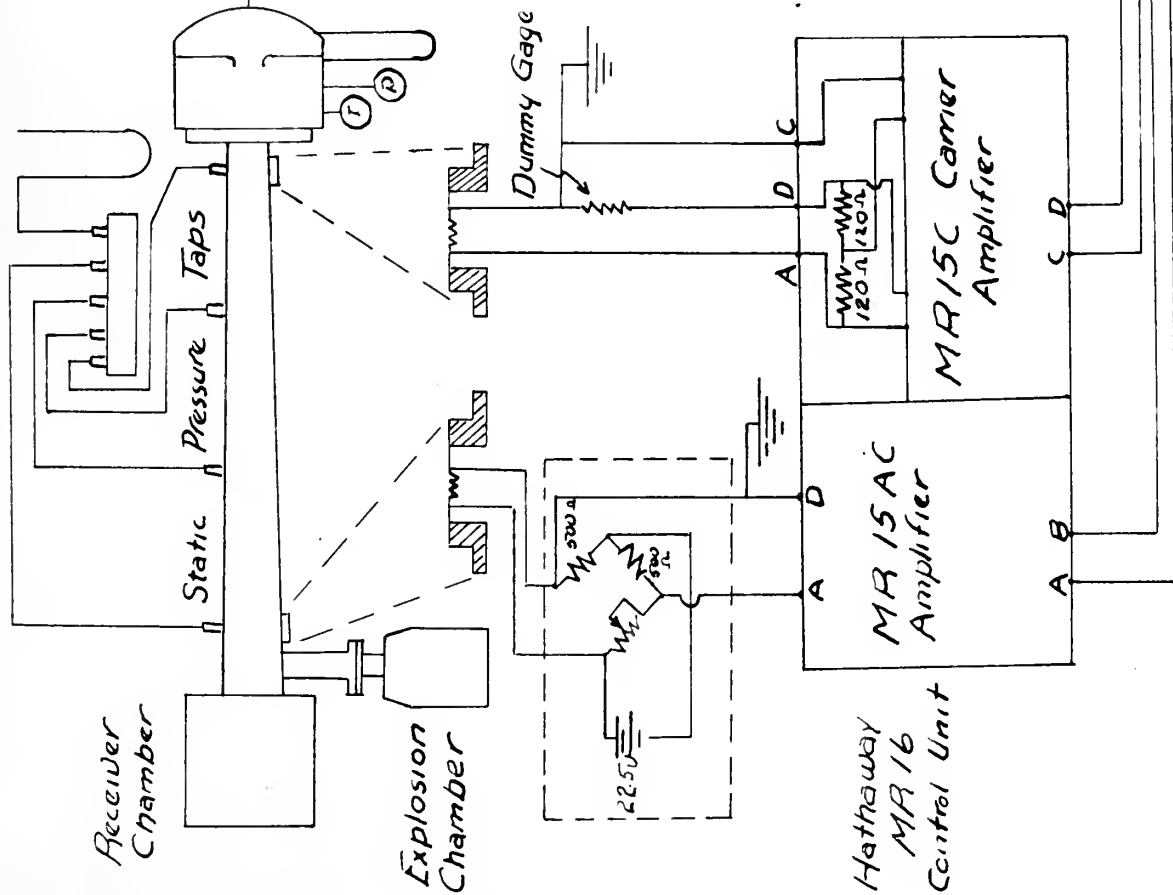 Receiver
Chamber
Static Pressure Taps
T
P
Explosion
Chamber
Dummy Gage
500Ω
500
Ω
22.5v
A D
A D C
120Ω 120Ω
MR 15 AC
Amplifier
MR 15C Carrier
Amplifier
A B
C D
Hathaway
MR 16
Control Unit